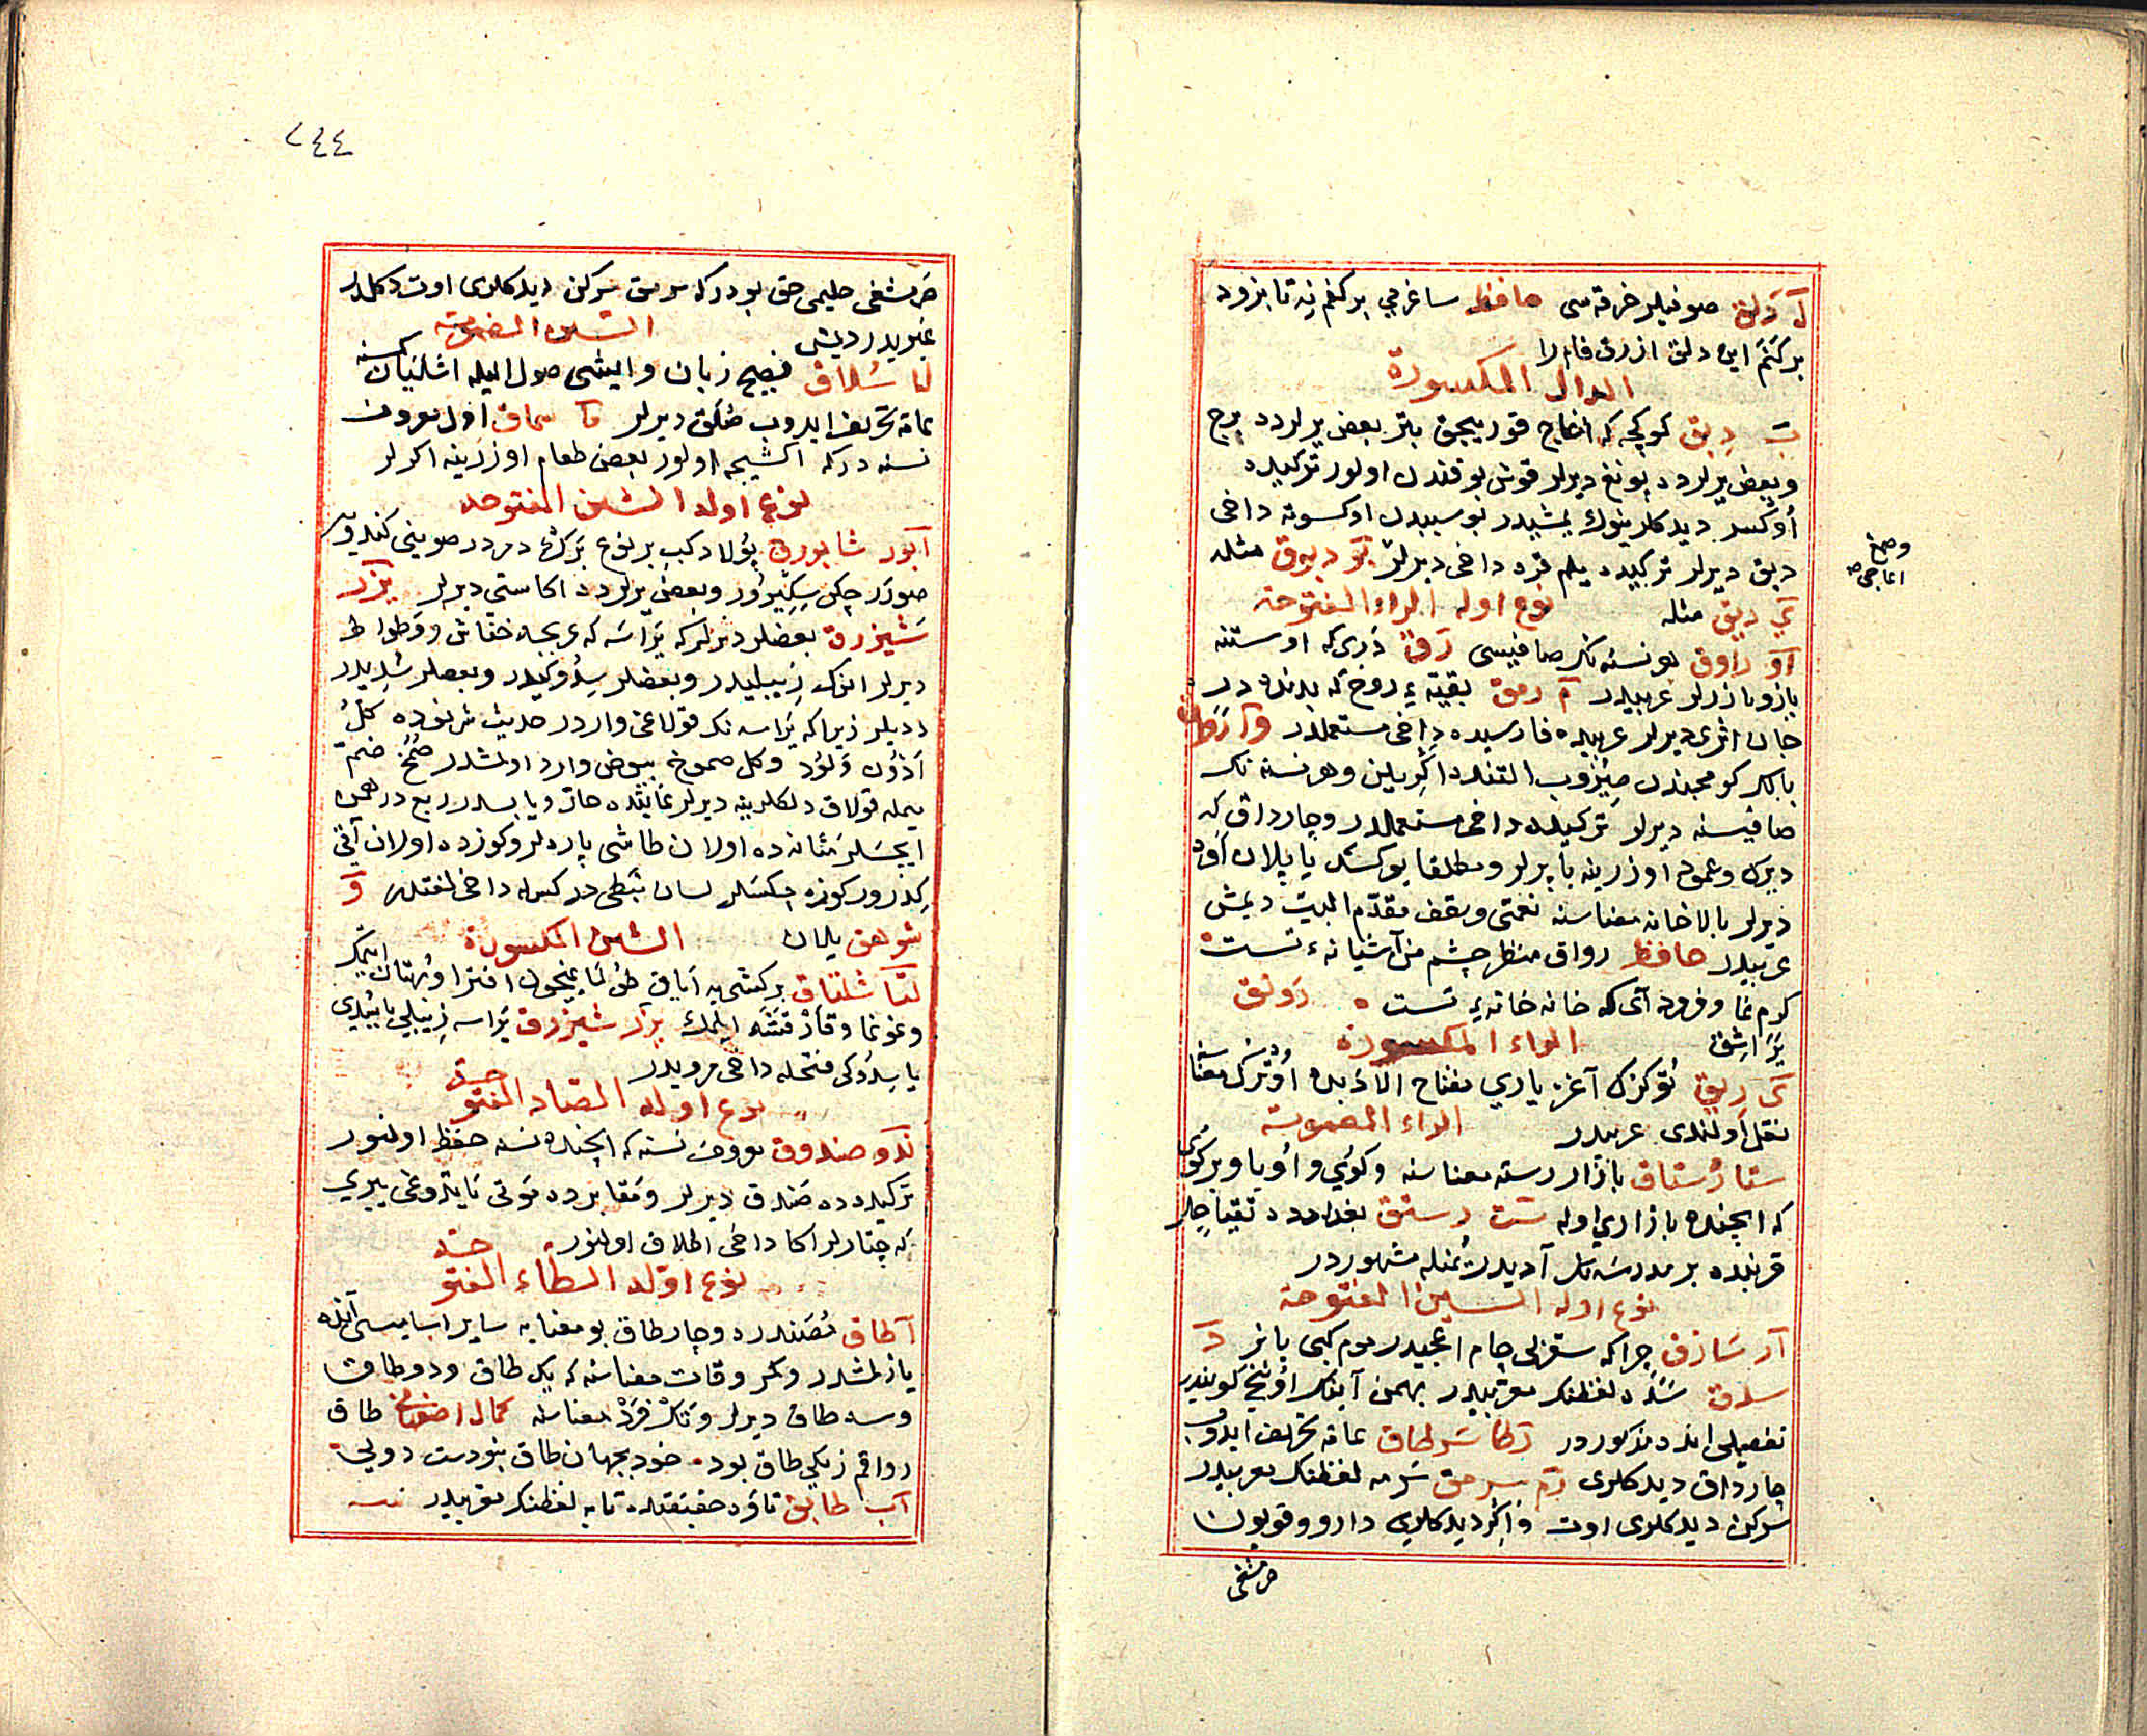 لـ دَلق صوفیلر خرقه سی حافظ ساغر می بر کفم نِه تا بزود
برکَنَم این دلق ازرق فام را
الدال المکسورة
بَ دِبق کوکچه که اغاج قور بیجق بتر بعض یرلرده برج
وبعض یرلرده پونغ دیرلر قوش بوقندن اولور ترکیده
اُوکسه دیدکلرینوك یمشیدر بو سببدن اوکسوته داخی
دبق دیرلر ترکیده یلم قره داخی دیرلر بَو دبوق مثله
وصمغ
اغاجی
بَي دبیق مثله نوع اوله الراء المفتوحة
اَو راوق هو نسنه نك صافیسی رَق دَری که اوستنه
یازو یازرلر عربیدر مَ رمق بقیّهء روح که بدنده در
جان اثری دیرلر عربیده فارسیده داخی مستعملدر وَا رَواق
صافیسنه دیرلر ترکیده داخی مستعملدر وچارداق که
دیرك وعمود اوزرینه یاپرلر ومطلقا یوکسك یاپیلان اَوه
دیرلر بالاخانه معناسنه نعمتی وسقف مقدّم البیت دیمش
عربیدر حافظ رواق منظر چشم من آشیانهء تست
کرم نما وفرود آی که خانه خانهء تست رَونق
یَرَاشِق الراء المکسورة
بَي ریق تُوکرك آغز یاری مفتاح الادبده اُوترك معناسنه
نقل اولندی عربیدر الراء المضمومة
ستا رُستاق بازار رسته معناسنه وکوَی واُوبا وبر کوی
که ایچنده بازاری اوله سَت رستق بغدادده تقیاجیلر
قربنده بر مدرسه نك آدیدر ثُمنله مشهوردر
نوع اوله السین المفتوحة
اَر سَازق چراکه سقزلی چام اغجیدر موم کبی یانر دَ
سدق سَدَه لفظنك معرّبیدر بهمن آینك اُونجی کونیدر
تفصیلی انده مذکوردر رَطا سَرطاق عامّه تحریف ایدوب
چارداق دیدکلری رَم سرمق سَرمه لفظنك معربیدر
سرکن دیدکلری اوت واکر دیدکلری دارو وقویون
حرشفی
٢٤٤
حَرشفی حلیمی حق بودرکه سرمق سرکن دیدکلری اوت دکلدر
غیریدر دیمش السین المضمومة
لَا سُلاق فصیح زبان وایشی صول الیله اشلیان کمسنه
عامّه تحریف ایدوب صُلَق دیرلر مَا سماق اول معروف
نسنه درکه اکشیجه اولور بعض طعام اوزرینه اکرلر
نوع اوله الشین المفتوحه
اَبَور شابورق پُولاد کبی بر نوع بَرك دمردر صوینی کندویه
صورَر چکر سِکیرور وبعض یرلرده اکاستی دیرلر یَزَر
شَیزرق بعضلر دیرلر که یَراسَه که عربیجه خفاش ووَطواط
دیرلر انوك زیبلیدر وبعضلر سِدُوکیدر وبعضلر سُدیدر
ددیلر زیرا که یَراسه نك قولاغی واردر حدیث شریفده کُلُّ
اَذُون وَلُود وکل صموخ بیوض وارد اولمشدر صُمُخ ضمّ
میمله قولاق دلکلرینه دیرلر غایتده حار ویابسدر ربع درهمن
ایچسَلر مَثانه ده اولان طاشی پارلر وکوزده اولان آقی
کِدَرور کوزه چکسَلر لسان نَبَطی در کسرله داخی لغتدر وَ
شوهق یلان الشین المکسورة
لتَا شلتاق برکشی یه اَیاق طُولَمَایغیچون افترا وبهتان ایتمك
وغوغا وقاَر فَتنه ایلمك یَزَر شیزرق یَراسه زیبلی یا سُدی
یا سِدُوکی فتحله داخی مرویدر
نوع اوله الصّاد المفتوحة
نَدَو صندوق معروف نسنه که ایچنده نسنه حفظ اولنور
ترکیده ده صَندق دیرلر ومَقابرده مَوتی یَاتدوغی ییری
که چتارلر اکا داخی اطلاق اولنور
نوع اوّله الطّاء المفتوحة
اَ طاق مُصَنّدرده وچار طاق بو معنایه سایر اسامیسی آنده
یازلمشدر وکمر وقات معناسنه که یك طاق ودو طاق
وسه طاق دیرلر وتَك فَرَد معناسنه کمال اصفهانی طاق
رواقم ز یکی طاق بود خود بجهان طاق بنودست دویی
اَب طابق تاوَه حقیقتده تابه لفظنك معرّبیدر